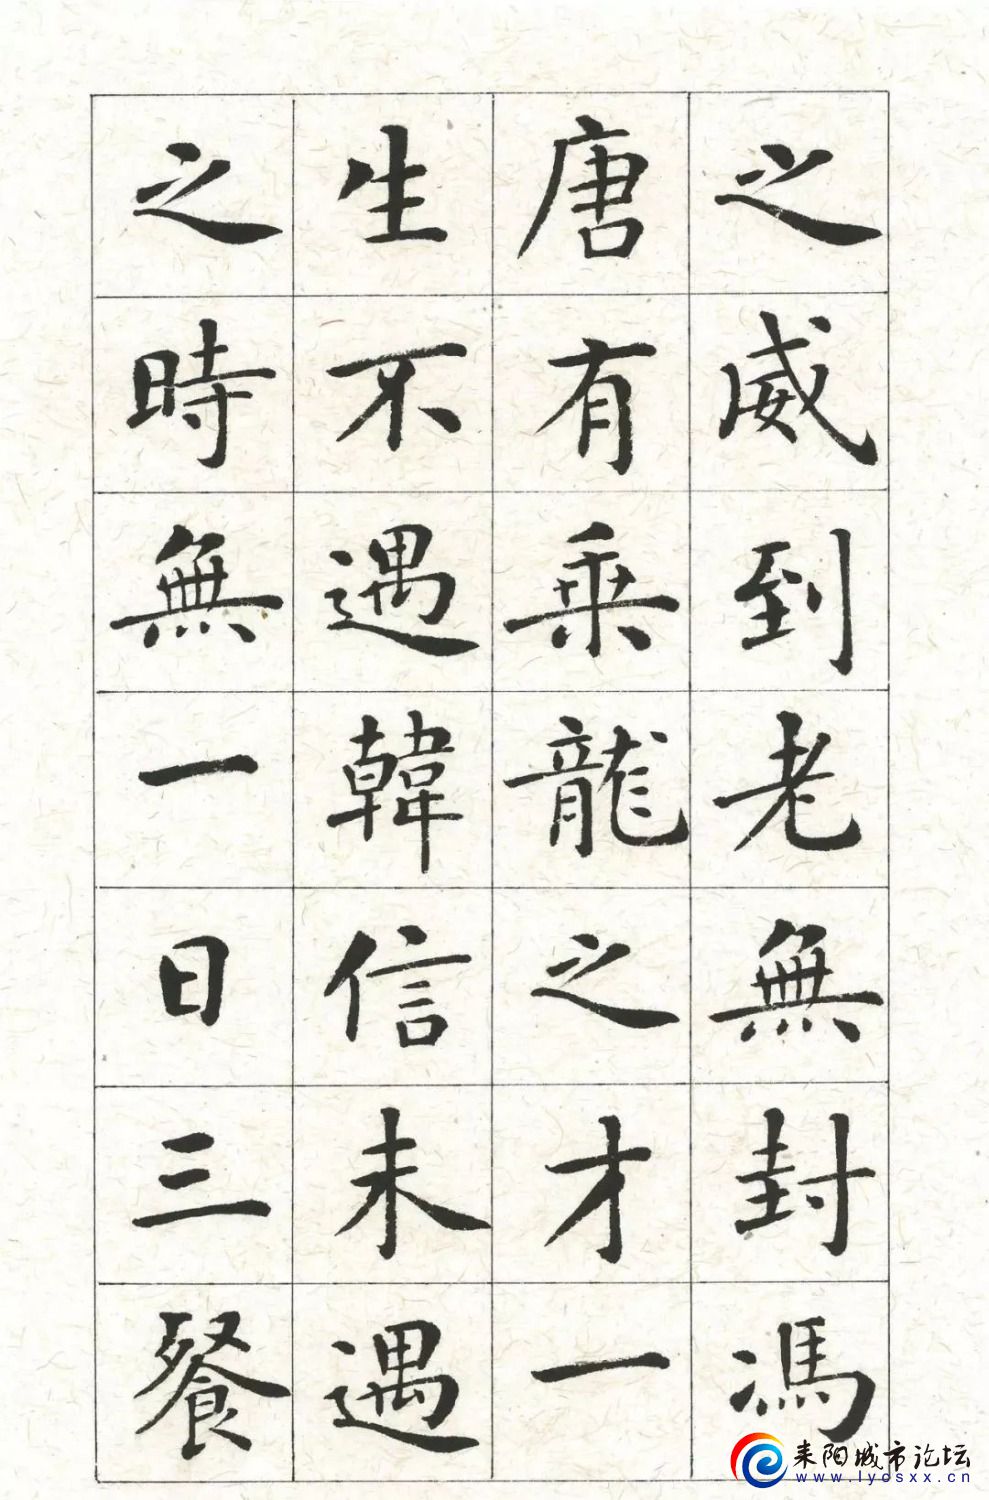 之威到老無封馮
唐有乗龍之才一
生不遇韓信未遇
之時無一日三餐
耒阳城市论坛
www.lyosxx.cn